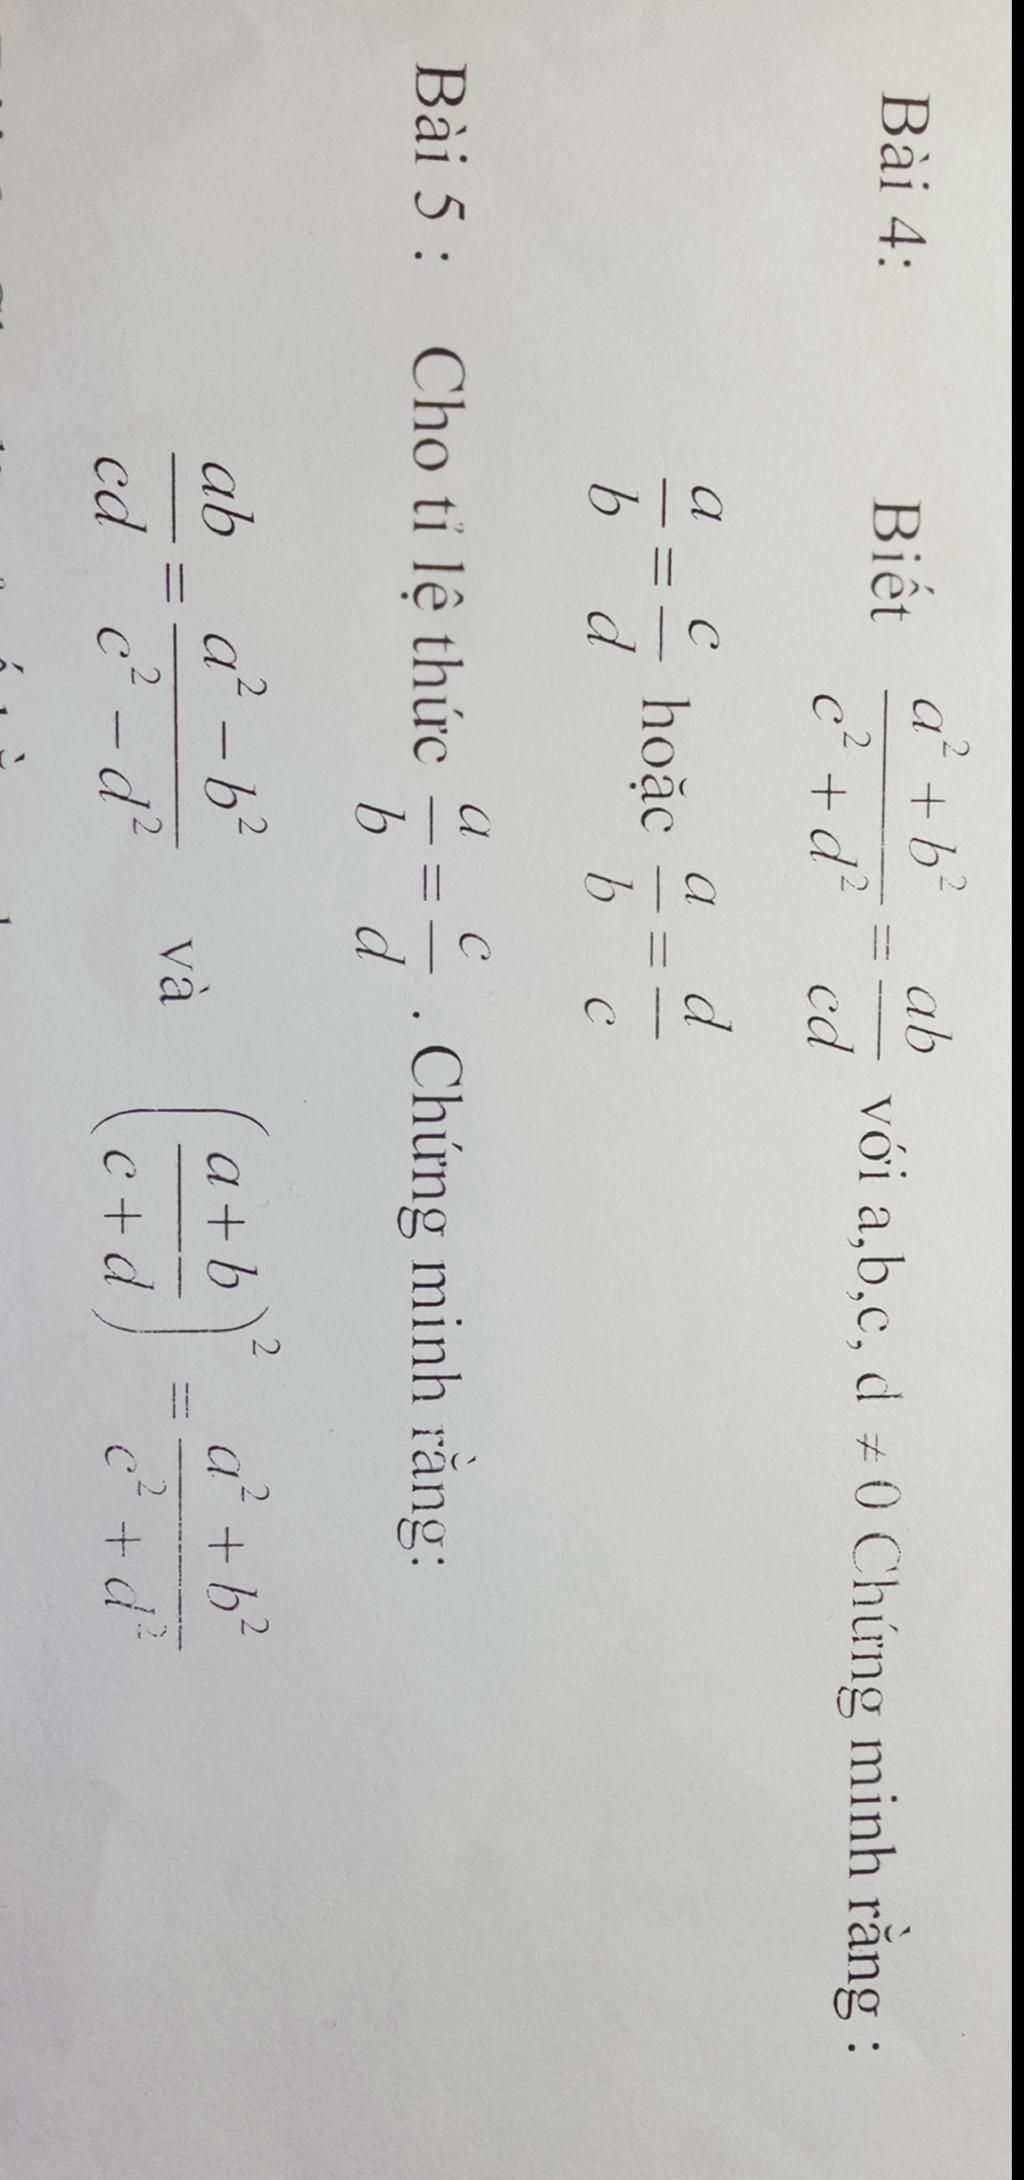 Bài 4: Biết \frac{a^2+b^2}{c^2+d^2} = \frac{ab}{cd} với a,b,c, d ≠ 0 Chứng minh rằng :
\frac{a}{b} = \frac{c}{d} hoặc \frac{a}{b} = \frac{d}{c}
Bài 5 : Cho tỉ lệ thức \frac{a}{b} = \frac{c}{d} . Chứng minh rằng:
\frac{ab}{cd} = \frac{a^2-b^2}{c^2-d^2} và \left(\frac{a+b}{c+d}\right)^2 = \frac{a^2+b^2}{c^2+d^2}